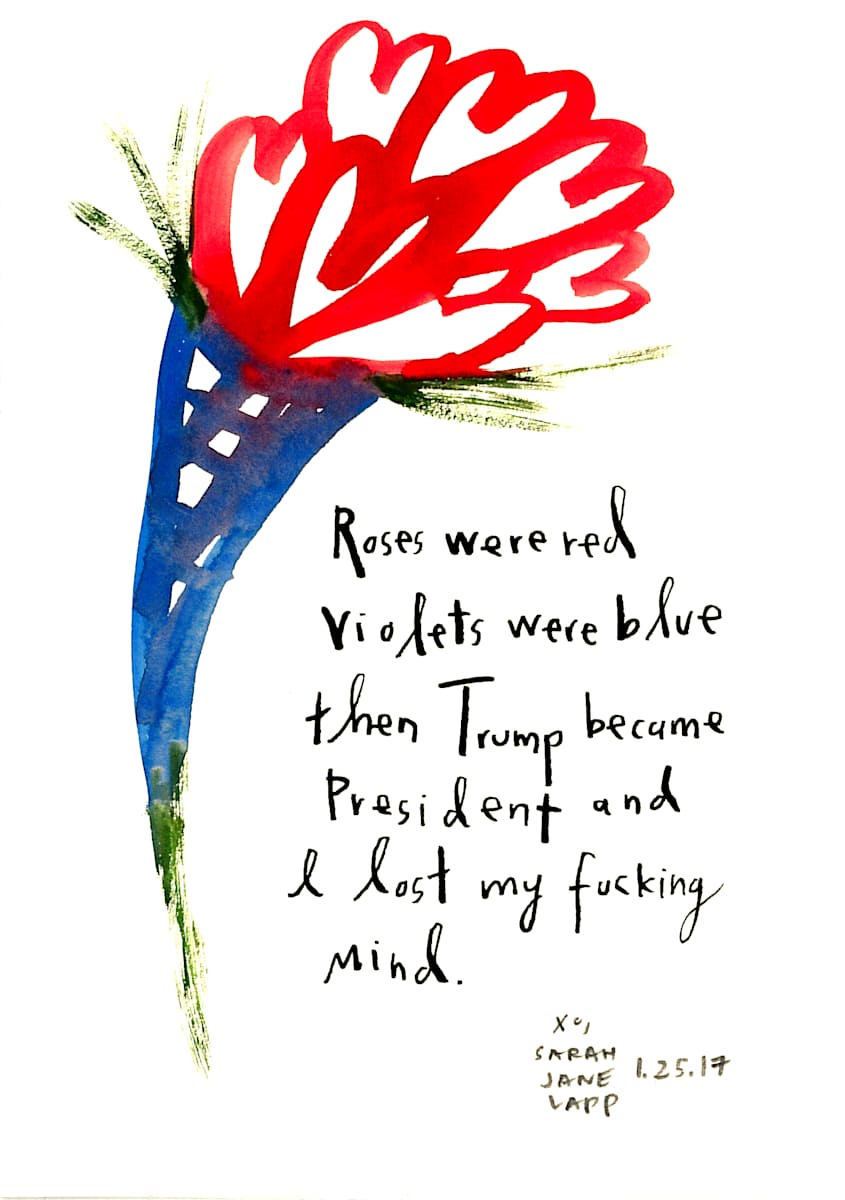 Roses were red
Violets were blue
then Trump became
President and
I lost my fucking
Mind.
xo,
SARAH
JANE 1.25.17
LAPP